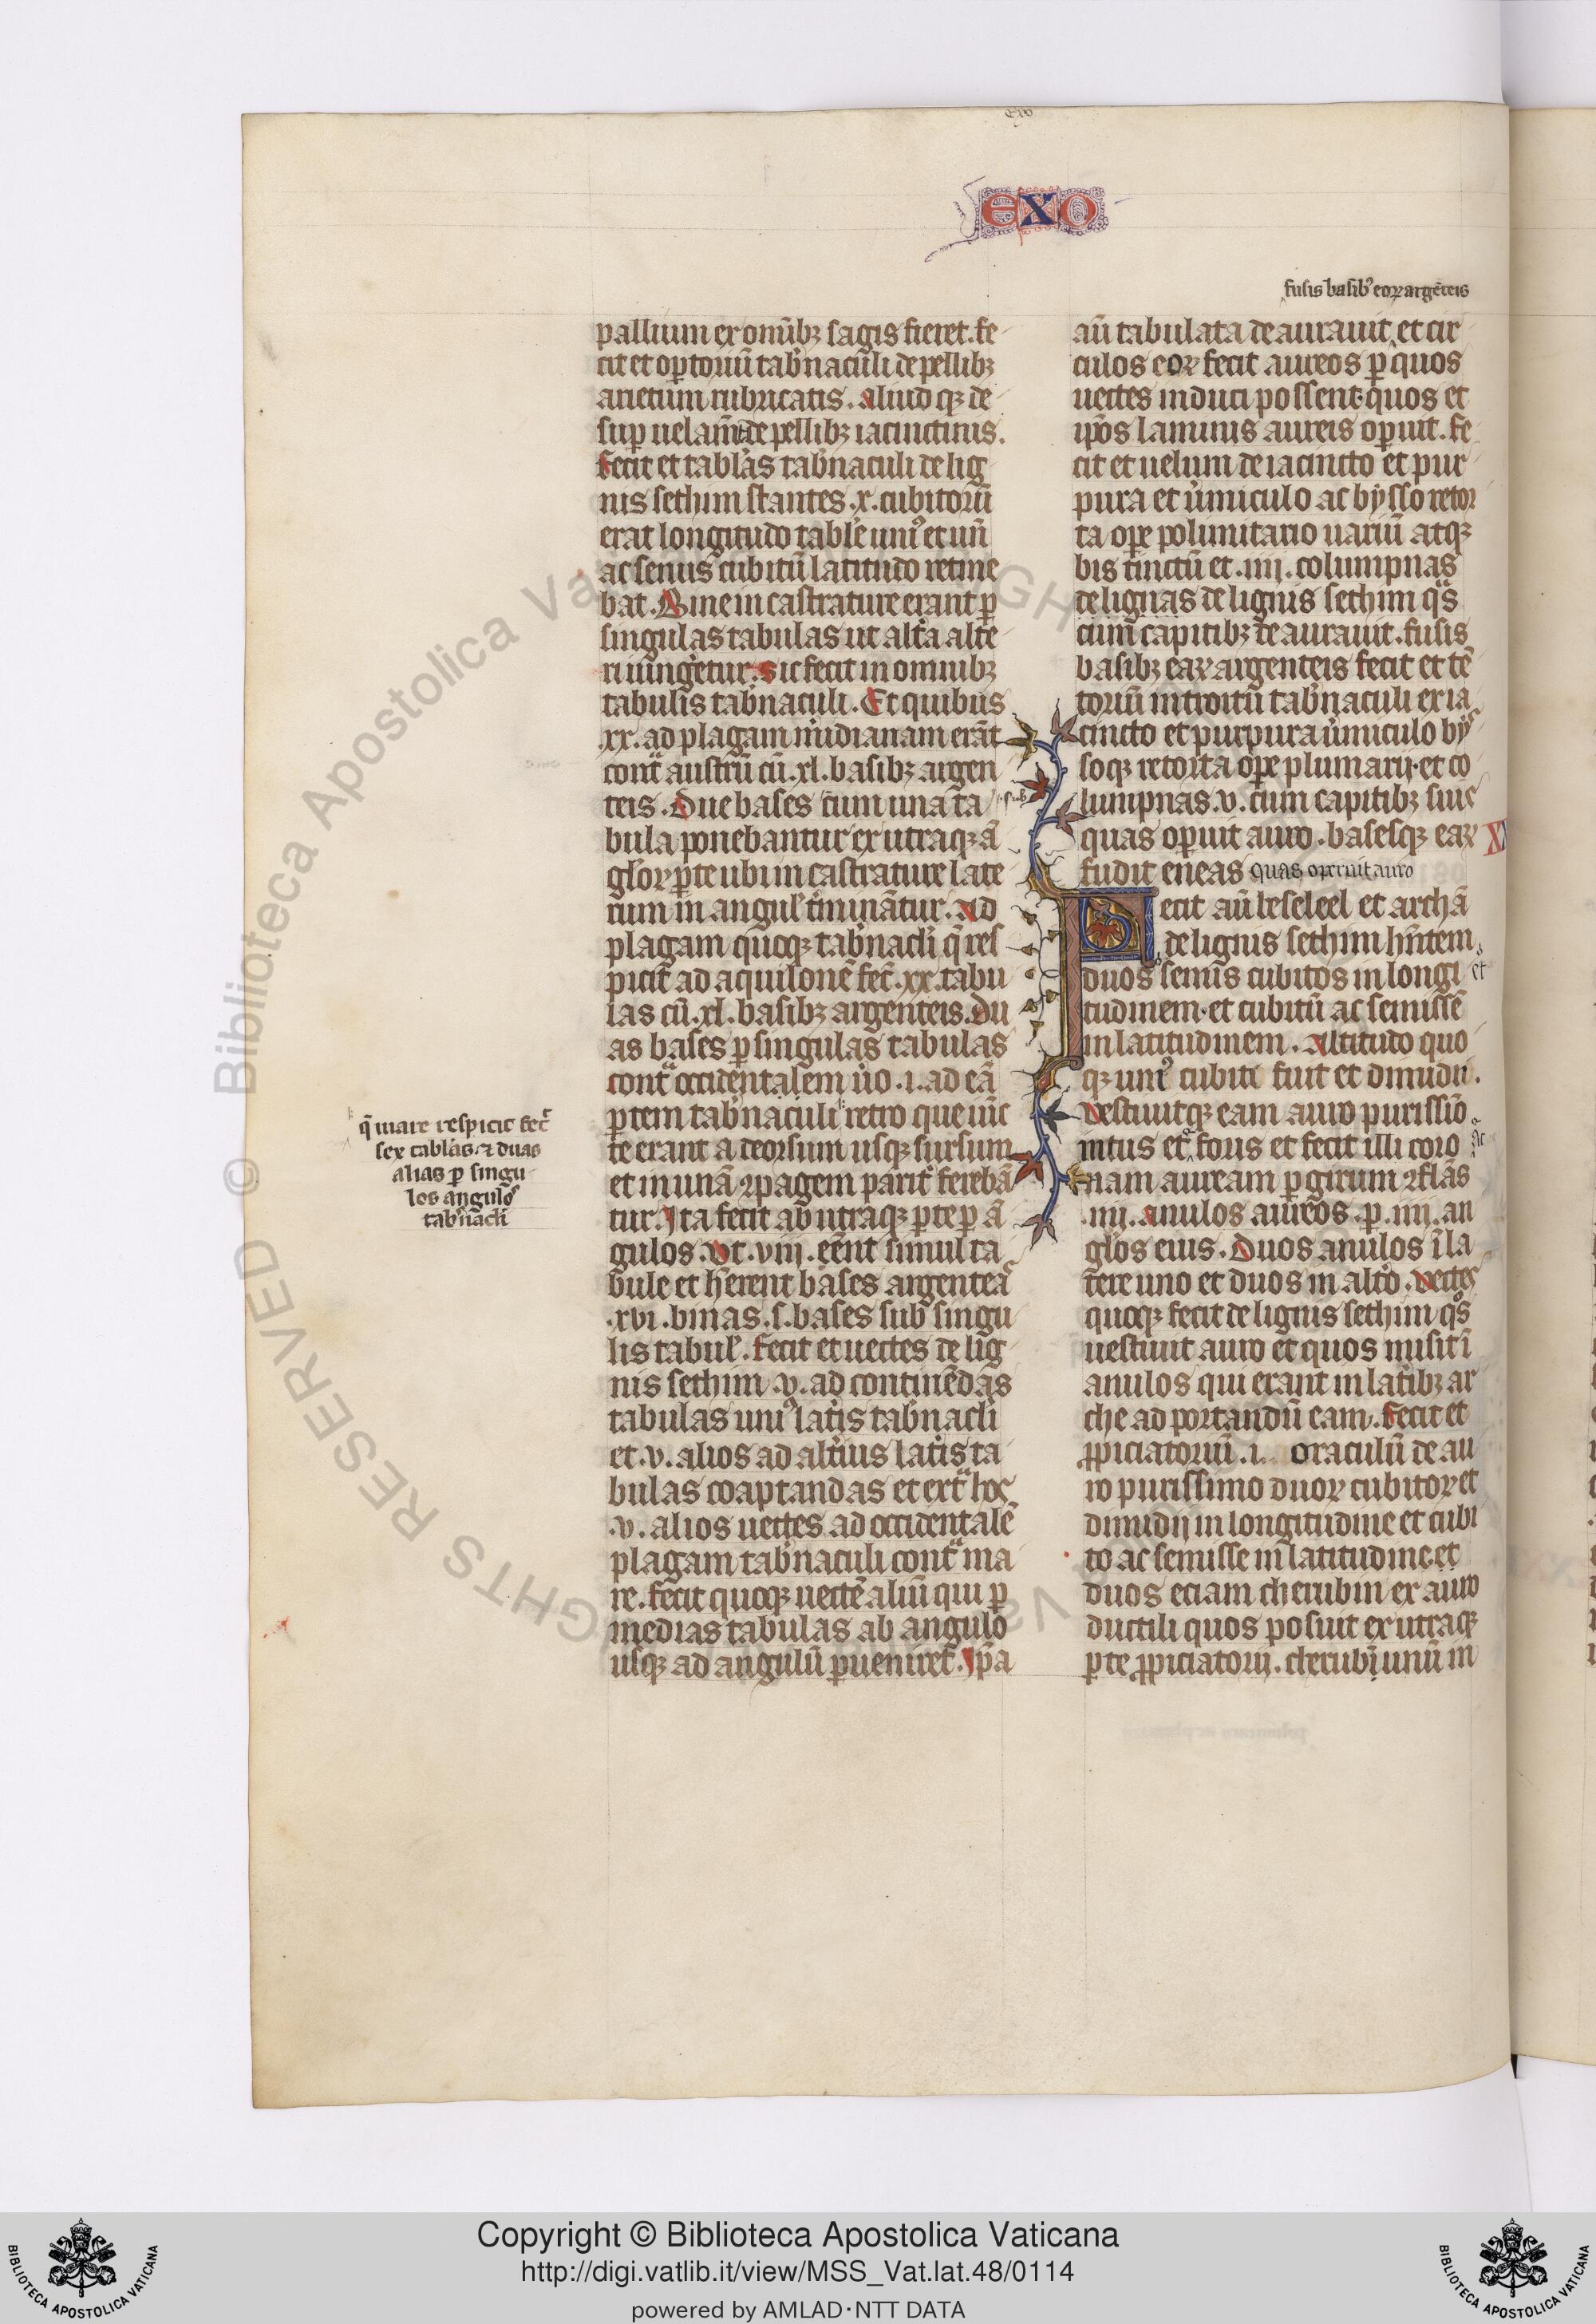 exo
EXO
fusis basibꝰ eoꝝ argēteis
pallium ex omībꝫ sagis fieret. fe
cit et opertoriū tab̄naculi de pellibꝫ
arietum rubricatis. aliud qꝫ de
sup uelam̄ de pellibꝫ iacinctinis.
fecit et tabl̓as tab̄naculi de lig
nis sethim stantes .x. cubitorū
erat longitudo tabl̓e uniꝰ et un̄
ac semis cubitū latitudo retine
bat. Bine incastrature erant ꝑ
singulas tabulas ut alt̓a alte
ri iungetur. sic fecit in omnibꝫ
tabulis tab̄naculi. Et quibus
.xx. ad plagam midianam erāt
cont̓ austrū cū .xl. basibꝫ argen
teis. due bases sub una ta
bula ponebantur ex utraqꝫ ā
gl̓oꝝ ꝑte ubi incastrature late
rum in angul̓ t̓minātur. ad
plagam quoqꝫ tab̄nacl̓i q̄ res
picit ad aquilonē fec̄ .xx. tabu
las cū .xl. basibꝫ argenteis. du
as bases ꝑ singulas tabulas
cont̓ occidentalem ůo .i. ad eā
ꝑtem tab̄naculi retro que iūc
te erant a deorsum usqꝫ sursum
et in unā ꝯpagem parit̓ ferebā
tur. Ita fecit ab utraqꝫ ꝑte ꝑ ā
gulos. ut .viii. eēnt simul ta
bule et h̓erent bases argenteas
.xvi. binas .s. bases sub singu
lis tabul̓. fecit et uectes de lig
nis sethim .v. ad continēdas
tabulas uniꝰ lat̓is tab̄nacl̓i
et .v. alios ad alt̓ius lat̓is ta
bulas coaptandas et ext̓ hos
.v. alios uectes ad occidentalē
plagam tab̄naculi cont̓ ma
re. fecit quoqꝫ uectē aliū qui ꝑ
medias tabulas ab angulo
usqꝫ ad angulū ꝑueniret. Ip̄a
q̄ mare respicit fec̄
sex tabl̓as ⁊ duas
alias ꝑ singu
los angulos
tab̓nacl̓i
aū tabulata deaurauit et cir
culos eoꝝ fecit aureos ꝑ quos
uectes induci possent quos et
ip̄os laminis aureis oꝑuit. fe
cit et uelum de iacincto et pur
pura et ůmiculo ac bysso retor
ta oꝑe polimitario uariū atqꝫ
bis tinctū et .iiii. columpnas
de lignas de lignis sethim qͣs
cum capitibꝫ deaurauit. fusis
basibꝫ eaꝝ argenteis fecit et tē
toriū introitū tab̄naculi ex ia
cincto et purpura ůmiculo bys
soqꝫ retorta oꝑe plumarij. et co
lumpnas .v. cum capitibꝫ suis
quas oꝑuit auro. basesqꝫ eaꝝ
fudit eneas quas operuit auro
Fecit aū beseleel et archā
de lignis sethim hn̄tem
duos semis cubitos in longi et
tudinem. et cubitū ac semissē
in latitudinem. Altitudo quo
qꝫ uniꝰ cubiti fuit et dimidii.
uestiuitqꝫ eam auro purissīo
intus et foris et fecit illi coro ac
nam auream ꝑ girum ꝯflās
.iiii. anulos aureos .ꝑ. iiii. an
gl̓os eius. Duos anulos ī la
tere uno et duos in alt̓o. uectes
quoqꝫ fecit de lignis sethim qͦs
uestiuit auro et quos misit ī
anulos qui erant in lat̓ibꝫ ar
che ad portandū eam. fecit et
ꝓpiciatoriū .i. oraculū de au
ro purissimo duoꝝ cubitoꝝ et
dimidij in longitudine et cubi
to ac semisse in latitudine. et
duos eciam cherubin ex auro
ductili quos posuit ex utraqꝫ
ꝑte ꝓpiciatorij. cherubī unū in
Copyright © Biblioteca Apostolica Vaticana
http://digi.vatlib.it/view/MSS_Vat.lat.48/0114
powered by AMLAD·NTT DATA
BIBLIOTECA APOSTOLICA VATICANA
BIBLIOTECA APOSTOLICA VATICANA